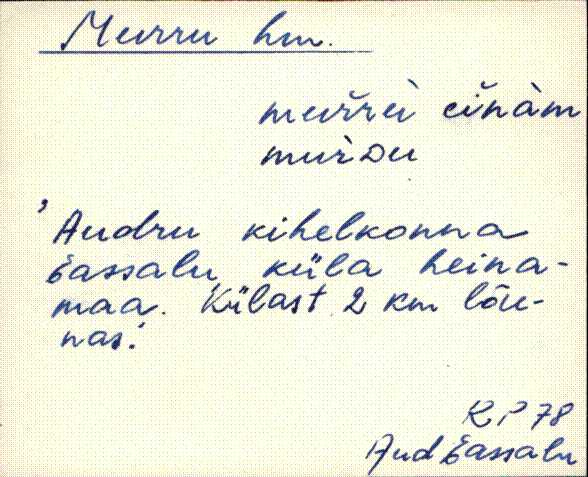 Murru hm.
mur̆rù ein̆àm
murDu
'Audru kihelkonna
Eassalu küla heina-
maa. Külast 2 km lõu-
nas.'
KP 78
Aud Eassalu